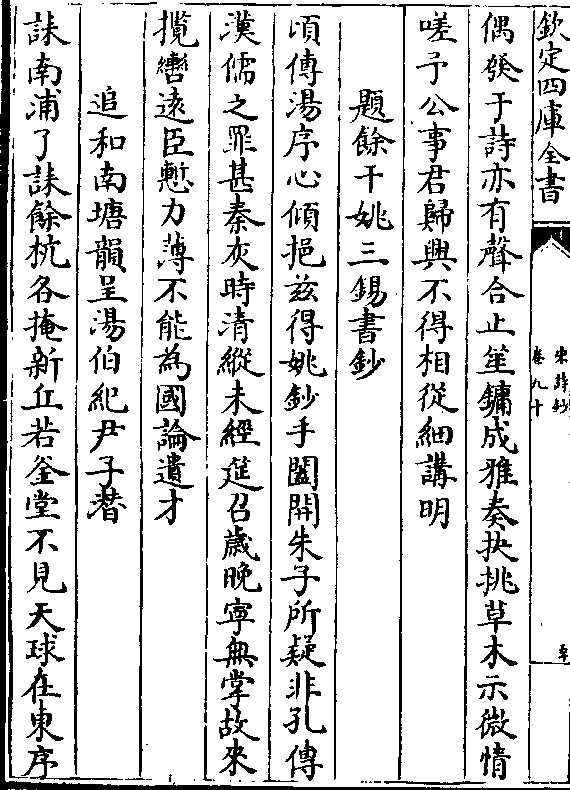 欽定四庫全書
宋詩鈔
卷九十
偶發于詩亦有聲合止笙鏞成雅奏抉挑草木示微情
嗟予公事君歸興不得相從細講明
題餘干姚三錫書鈔
頃傳湯序心傾挹兹得姚鈔手闔開朱子所疑非孔傳
漢儒之罪甚秦灰時清縱未經筵召歲晚寧無掌故來
攬轡逺臣慙力薄不能為國論遺才
追和南塘韻呈湯伯紀尹子潛
誄南浦了誄餘杭各掩新丘若釜堂不見天球在東序